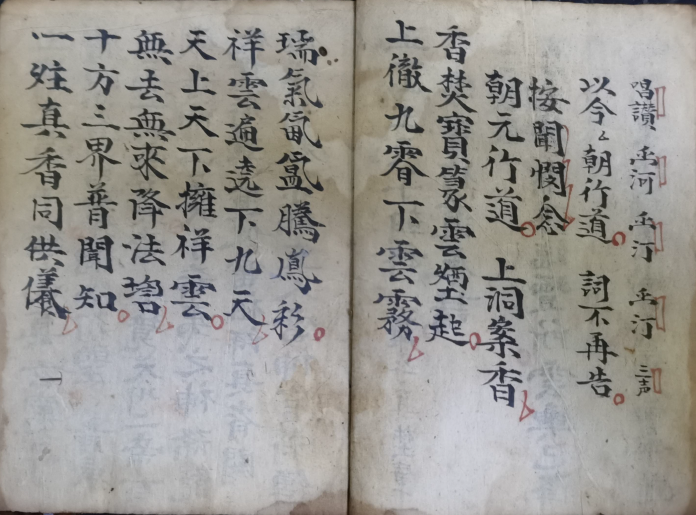 唱讚 㘴河 㘴汀 㘴汀 三声
以今々朝行道 詞不再告
按闈憫念
朝元行道 上洞案香
香焚寶篆雲煙起
上徹九霄下雲霧
瑞氣氤氳騰鳳彩
祥雲遍遶下九天
天上天下擁祥雲
無去無來降法
十方三界普聞知
一炷真香同供儀
一